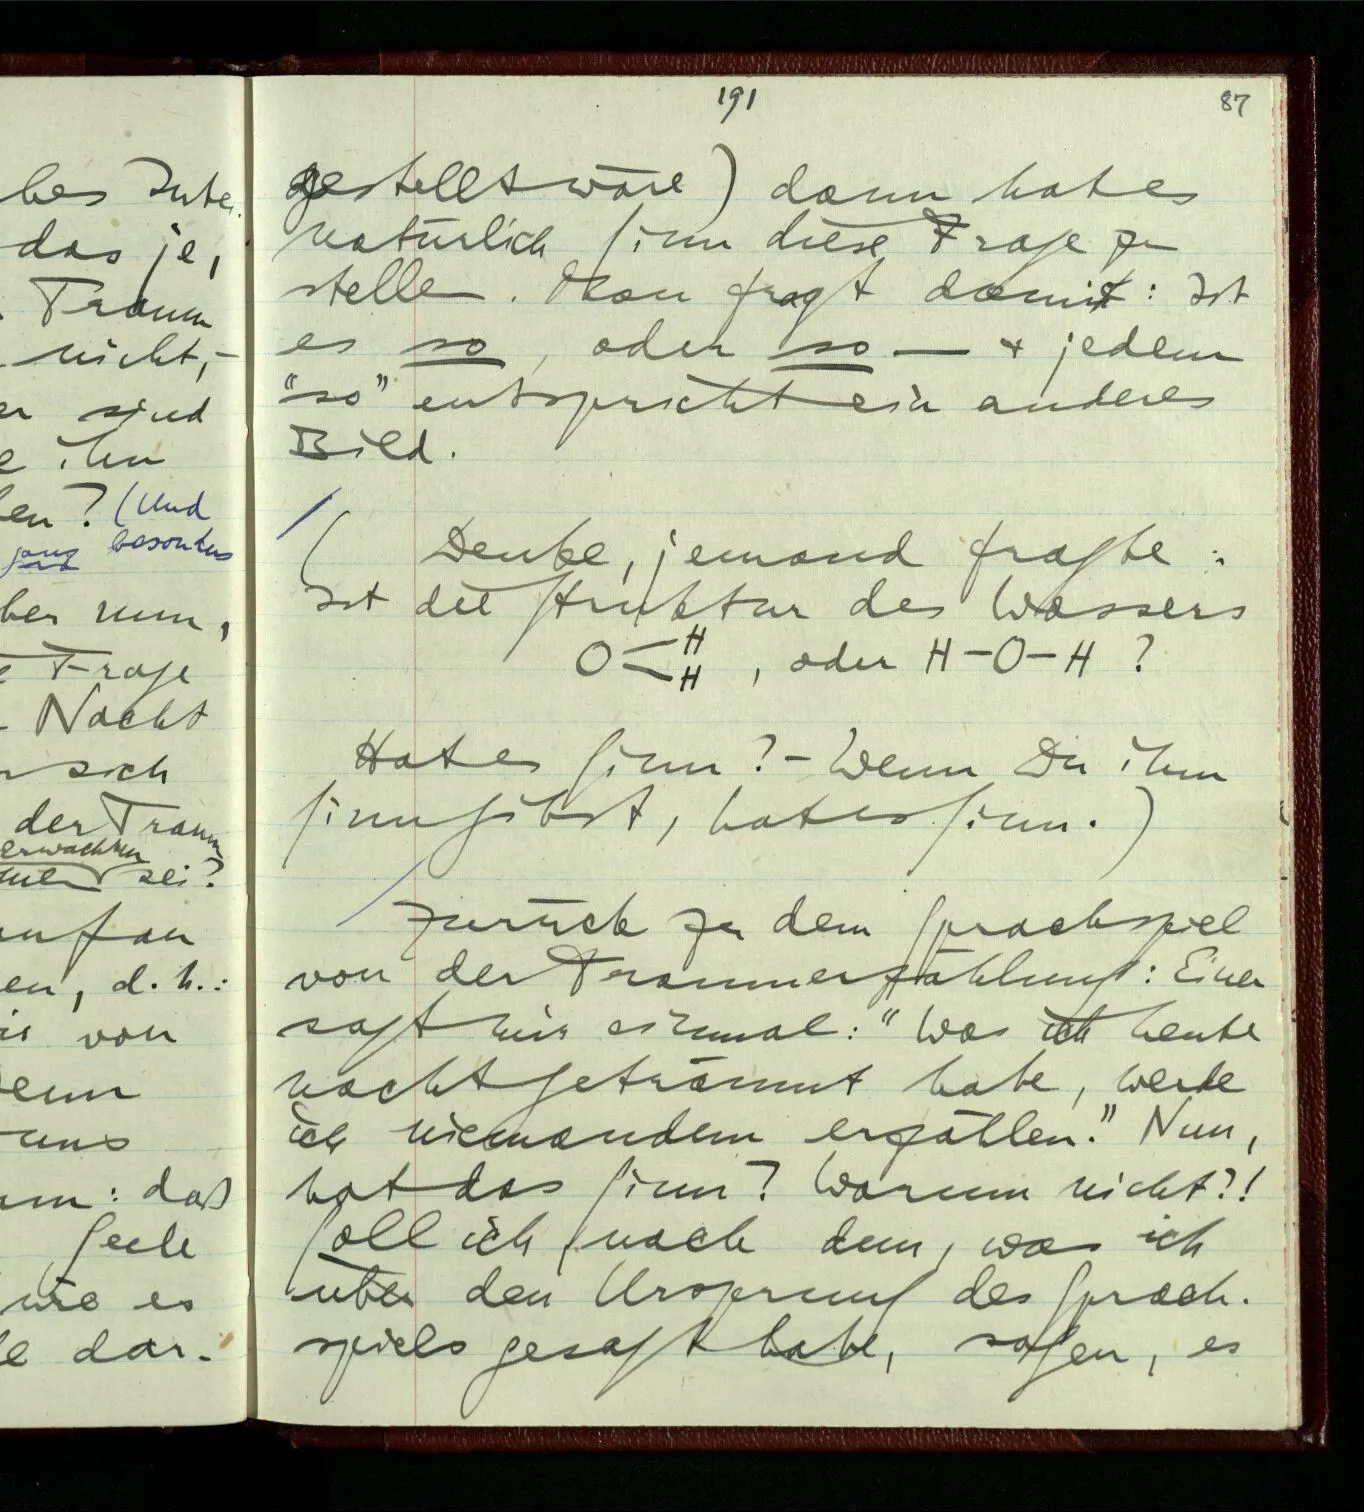 191
87
bes Inte
das je,
Traum
nicht, –
er sind
e ihn
en? (Und
ganz besonders
ber nun,
e Frage
Nacht
sich
der Traum
erwachten
sei?
auf an
en, d.h.:
von
Denn
uns
: daß
Seele
wie es
dar-
gestellt wäre) dann hat es
natürlich Sinn diese Frage zu
stellen. Man fragt damit: Ist
es so, oder so — & jedem
“so” entspricht ein anderes
Bild.
/
( Denke, jemand fragte:
Ist die Struktur des Wassers
O<H H, oder H–O–H ?
Hat es Sinn? – Wenn Du ihm
Sinn gibst, hat es Sinn.)
/ Zurück zu dem Sprachspiel
von der Traumerzählung: Einer
sagt mir einmal: “Was ich heute
nacht geträumt habe, werde
ich niemandem erzählen.” Nun,
hat das Sinn? Warum nicht?!
Soll ich, nach dem, was ich
über den Ursprung des Sprach-
spiels gesagt habe, sagen, es